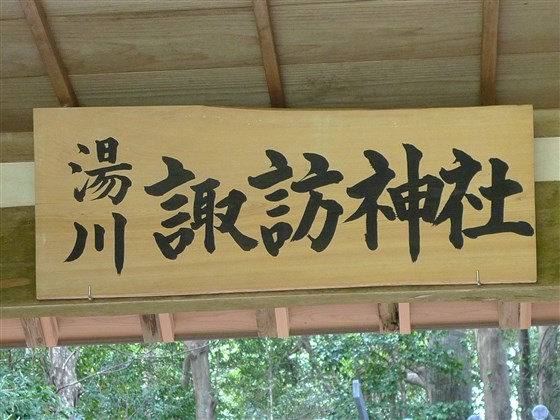 湯川
諏訪神社